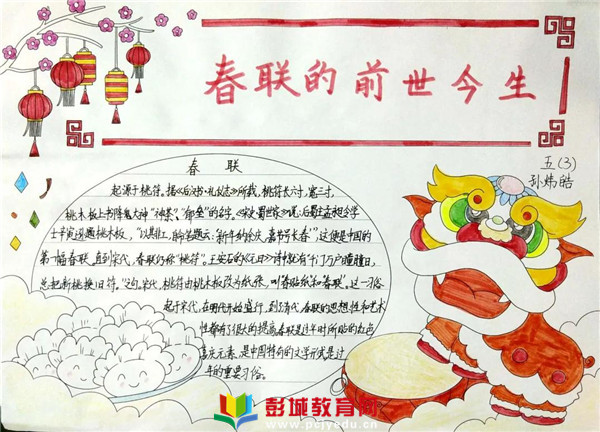 春联的前世今生
五(3)
孙炜皓
春联
起源于桃符。据《后汉书·礼仪志》所载,桃符长六寸,宽三寸,
桃木板上书降鬼大神"神荼"、"郁垒"的名字。
士辛寅逊题桃木板,"以其非工,自命笔题云:新年纳余庆,嘉节号长春",这便是中国的
第一幅春联。直到宋代,春联仍称"桃符"。王安石的《元日》诗中就有"千门万户曈曈日,
总把新桃换旧符。"之句。宋代,桃符由桃木板改为纸张,叫"春贴纸"和"春联"。这一习俗
起于宋代,在明代开始盛行,到了清代,春联的思想性和艺术
性都有了很大的提高,春联是过年时所贴的红色
喜庆元素,是中国特有的文学形式,是过
年的重要习俗。
彭城教育网
www.pcjyedu.cn